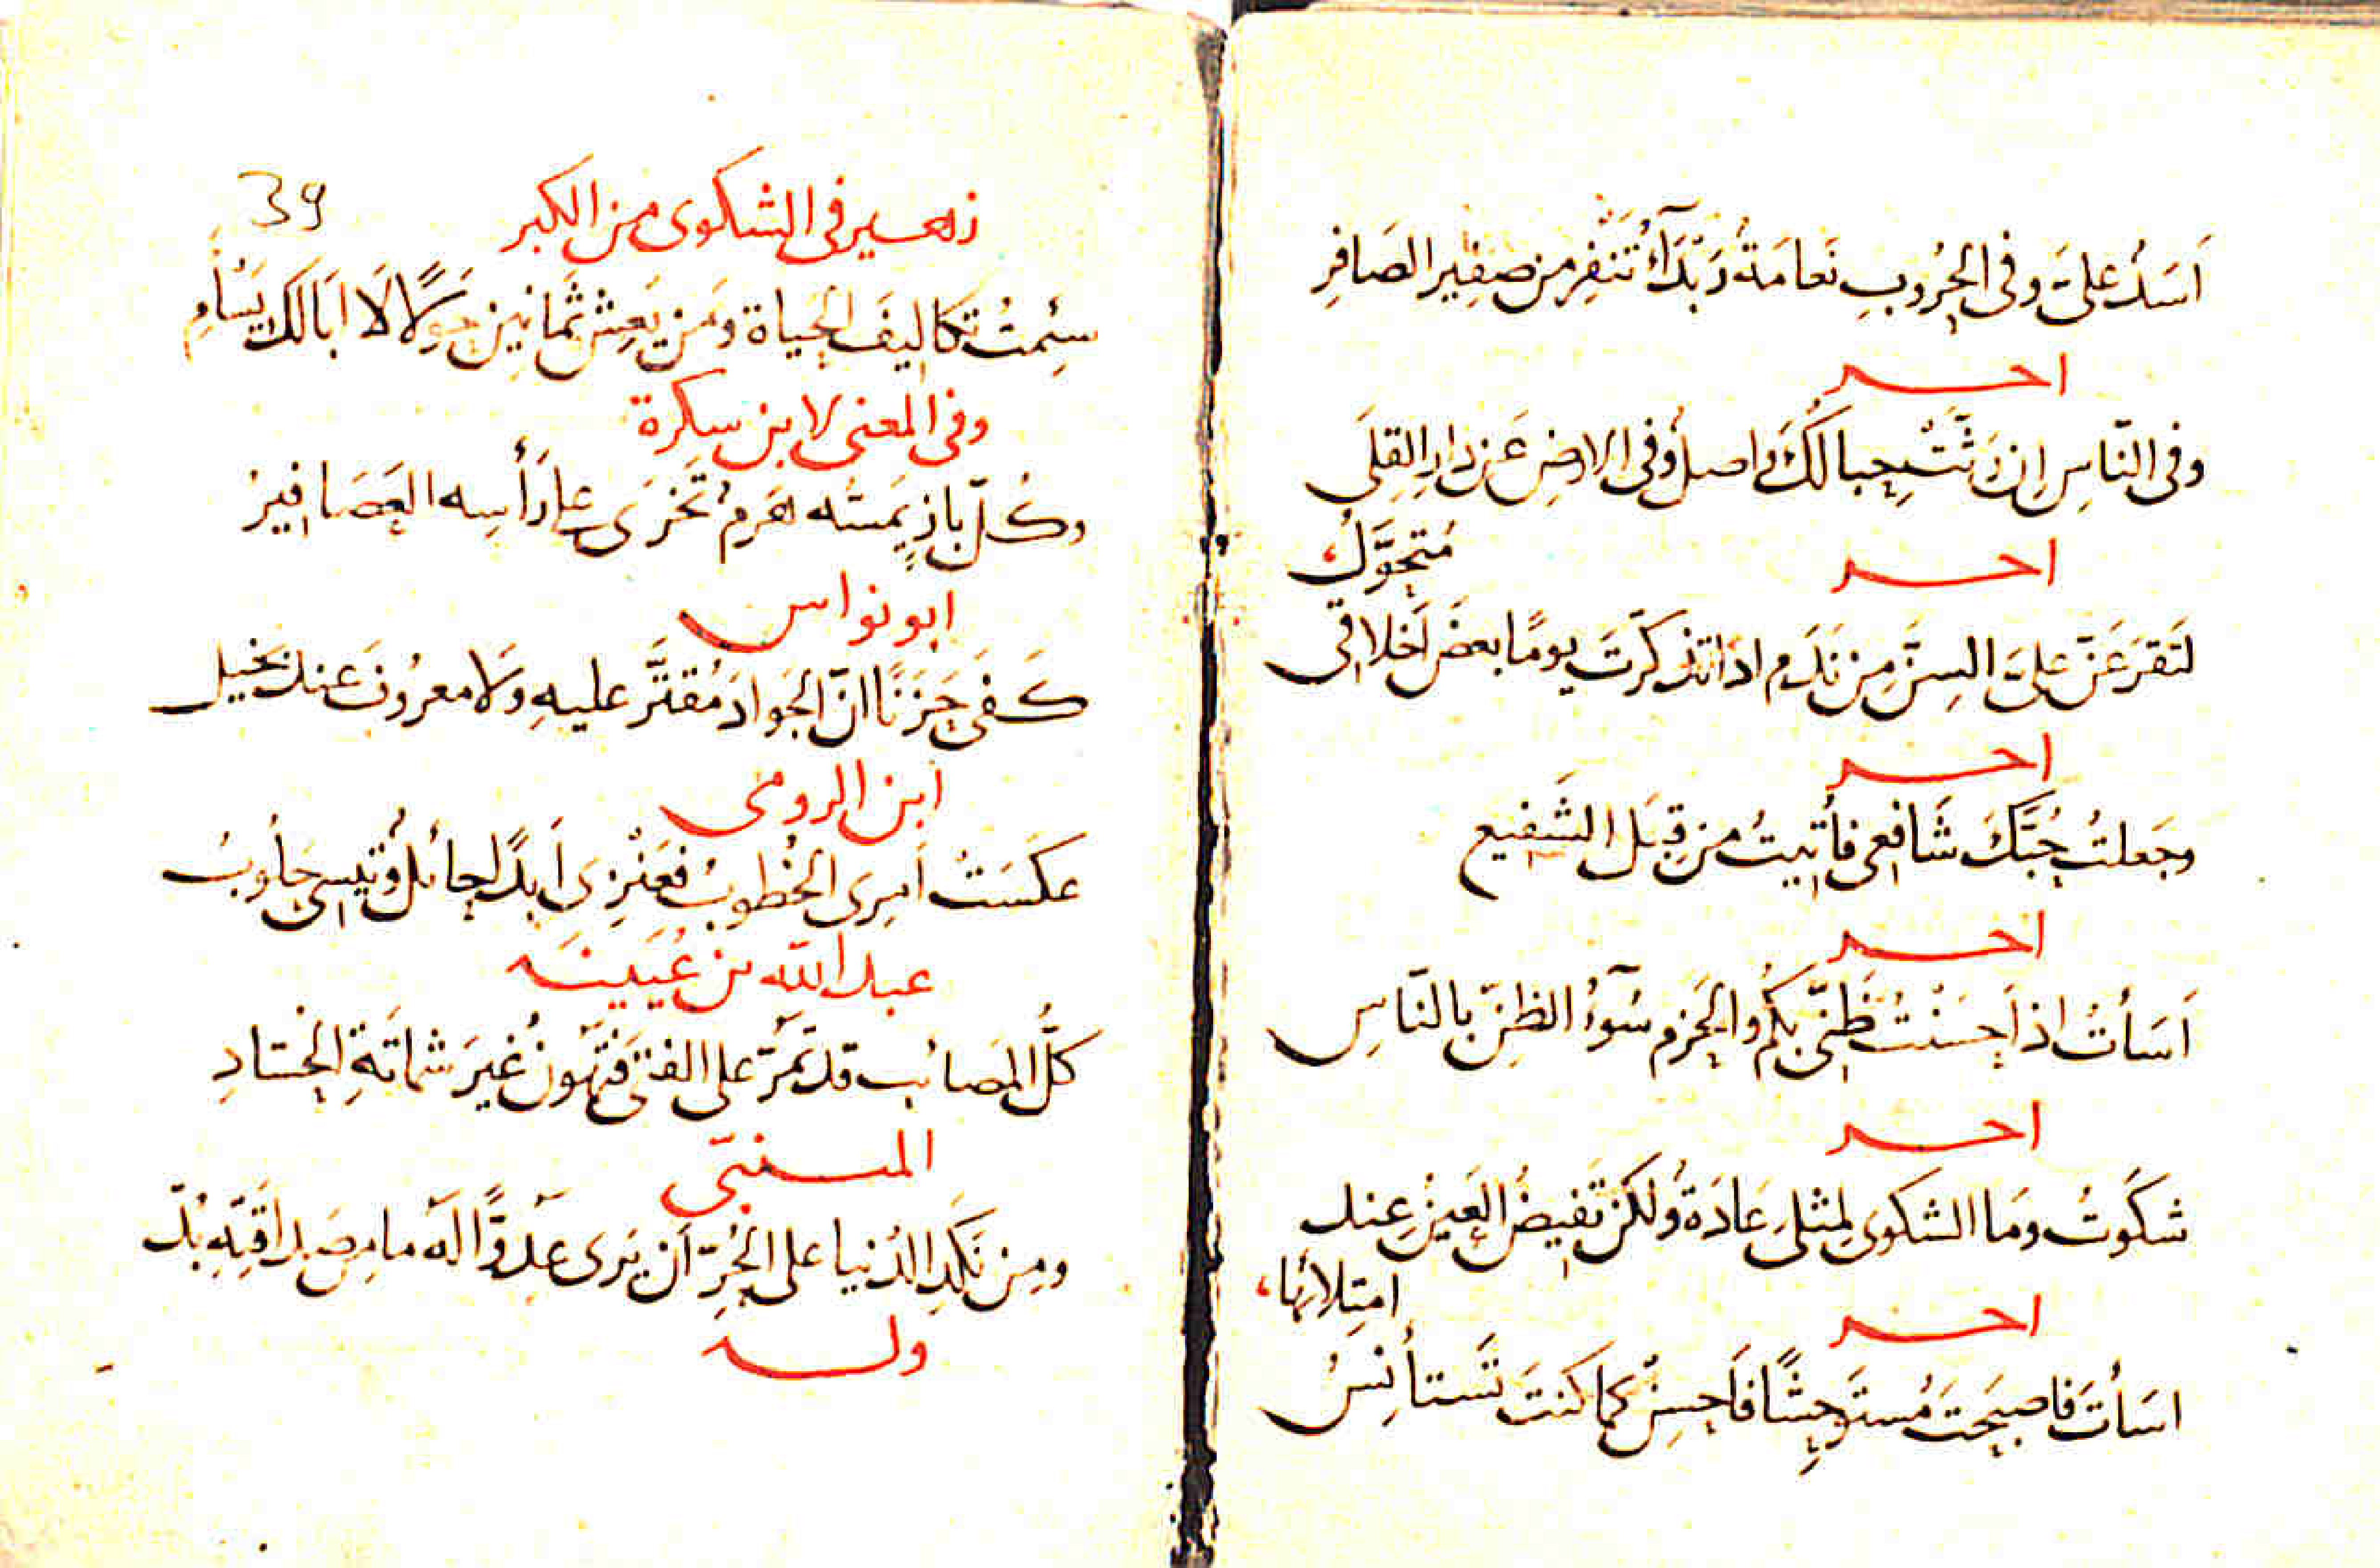 اَسَدٌ علىَّ وفى الحُرُوبِ نَعامَةٌ رَبْدَآءُ تَنفِر من صفِيرِ الصَافِرِ
اخر
وفى النّاسِ اِن رَثَّتْ حِبالُكَ واصلٌ وفى الارضِ عَن دارِ القِلَى
مُتحَوَّلُ
اخر
لتَقرَعَنَّ علىَّ السِنَّ مِن نَدَم اذا تذكرّتَ يومًا بعضَ اَخلاقى
اخر
وجَعلتُ حُبَّكَ شَافعى فأُتيتُ من قِبَل الشَفيع
اخر
اَسَأتُ اذ اَحسَنْتُ ظَنّى بكُم والحَزم سُوٓءُ الظنِّ بالنّاسِ
اخر
شكَوتُ ومَا الشكوى لِمثلىِ عَادَةٌ ولكن تَفيضُ العَينُ عند
امتِلائها
اخر
اسَأتَ فاصبَحتَ مُستَوحِشًا فاَحسِنْ كما كنتَ تَستأنِسُ
39
زهير فى الشكوى من الكبر
سئِمتُ تَكَاليفَ الحَياة ومَن يَعِشْ ثَمانينَ حَولًا لَا اَبَا لَكَ يَسْأَمِ
وفى المعنى لابن سكرة
وكُلّ بازٍ يَمسّه هَرمٌ تَخرَى على رَأسِه العَصَافِيرُ
ابو نواس
كَفَى حَزَنًا انّ الجَوادَ مُقتَّرٌ عليهِ وَلا معرُوفَ عِند بَخيل
ابن الرومى
عكَسَتْ اَمرِى الخُطوبُ فعَنْزِى اَبدًا حائلٌ وتَيسى حَلُوبُ
عبد الله بن عُيَينَه
كلُّ المَصائبِ قد تَمرّ على الفتى فَتَهُونُ غيرَ شماتَةِ الحُسّادِ
المتنبّى
ومِن نَكَدِ الدُنيا على الحُرّ أن يَرى عَدوًّا لَه ما مِن صَداقَتِه بُدّ
وله